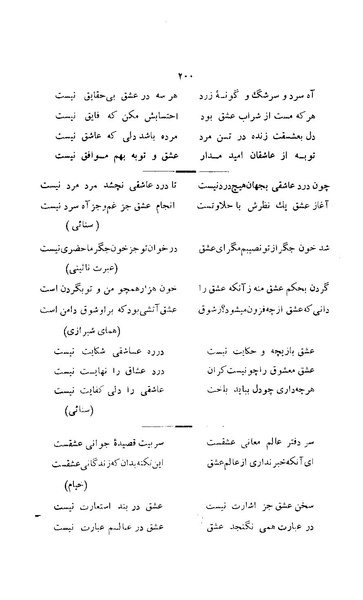 ۲۰۰
آه سرد و سرشگ و گونهٔ زرد هر سه در عشق بی حقایق نیست
هر که مست از شراب عشق بود احتسابش مکن که فایق نیست
دل بعشقست زنده در تن مرد مرده باشد دلی که عاشق نیست
توبه از عاشقان امید مدار عشق و توبه بهم موافق نیست
چون درد عاشقی بجهان هیچ درد نیست تا درد عاشقی نچشد مرد مرد نیست
آغاز عشق یك نظرش با حلاوتست انجام عشق جز غم و جز آه سرد نیست
(سنائی)
شد خون جگر از تو نصیبم مگر ای عشق در خوان تو جز خون جگر ماحضری نیست
(عبرت نائینی)
گردن بحکم عشق منه زآنکه عشق را خون هزار همچو من و تو بگردن است
دانی که عشق از چه فزون میشود؟ ز شوق عشق آتشی بود که بر او شوق دامن است
(همای شیرازی)
عشق بازیچه و حکایت نیست درره عاشقی شکایت نیست
عشق معشوق را چو نیست کران درد عشاق را نهایت نیست
هر چه داری چو دل بباید باخت عاشقی را دلی کفایت نیست
(سنائی)
سر دفتر عالم معانی عشقست سربیت قصیدهٔ جوانی عشقست
ای آنکه خبر نداری از عالم عشق این نکته بدان که زندگانی عشقست
(خیام)
سخن عشق جز اشارت نیست عشق در بند استعارت نیست
در عبارت همی نگنجد عشق عشق در عالم عبارت نیست